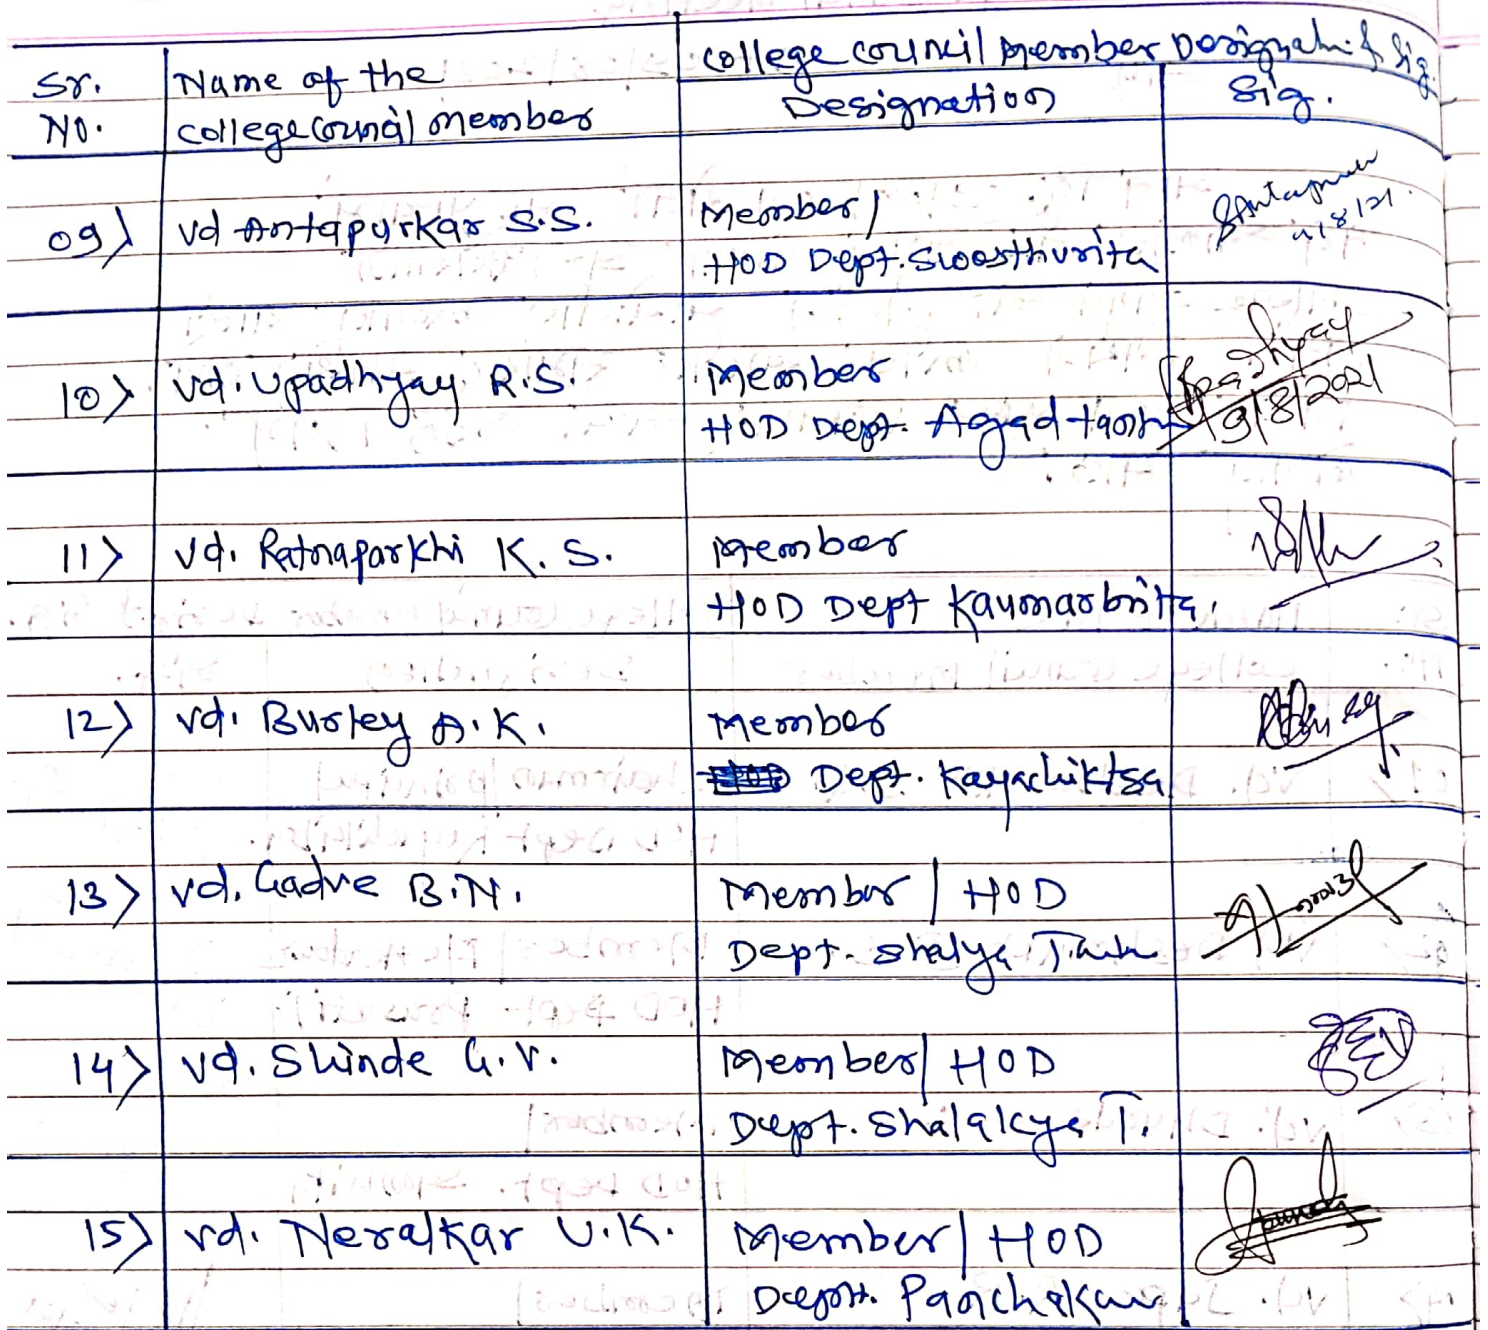 college council member Designati & Sig.
Sr. Name of the Designation Sig.
No. college council member
09) Vd Antapurkar S.S. Member/
HOD Dept. Swasthvrita
10) Vd. Upadhyay R.S. Member Upadhyay
HOD Dept. Agadtantra 9/8/2021
11) Vd. Ratnaparkhi K. S. Member
HOD Dept Kaumarbritta.
12) Vd. Burley A.K. Member
Dept. Kayachiktsa
13) Vd. Gadve B.N. Member / HOD
Dept. Shalya Tank
14) Vd. Shinde G.V. Member/ HOD
Dept. Shalakya T.
15) Vd. Neralkar U.K. Member/ HOD
Deptt. Panchakam